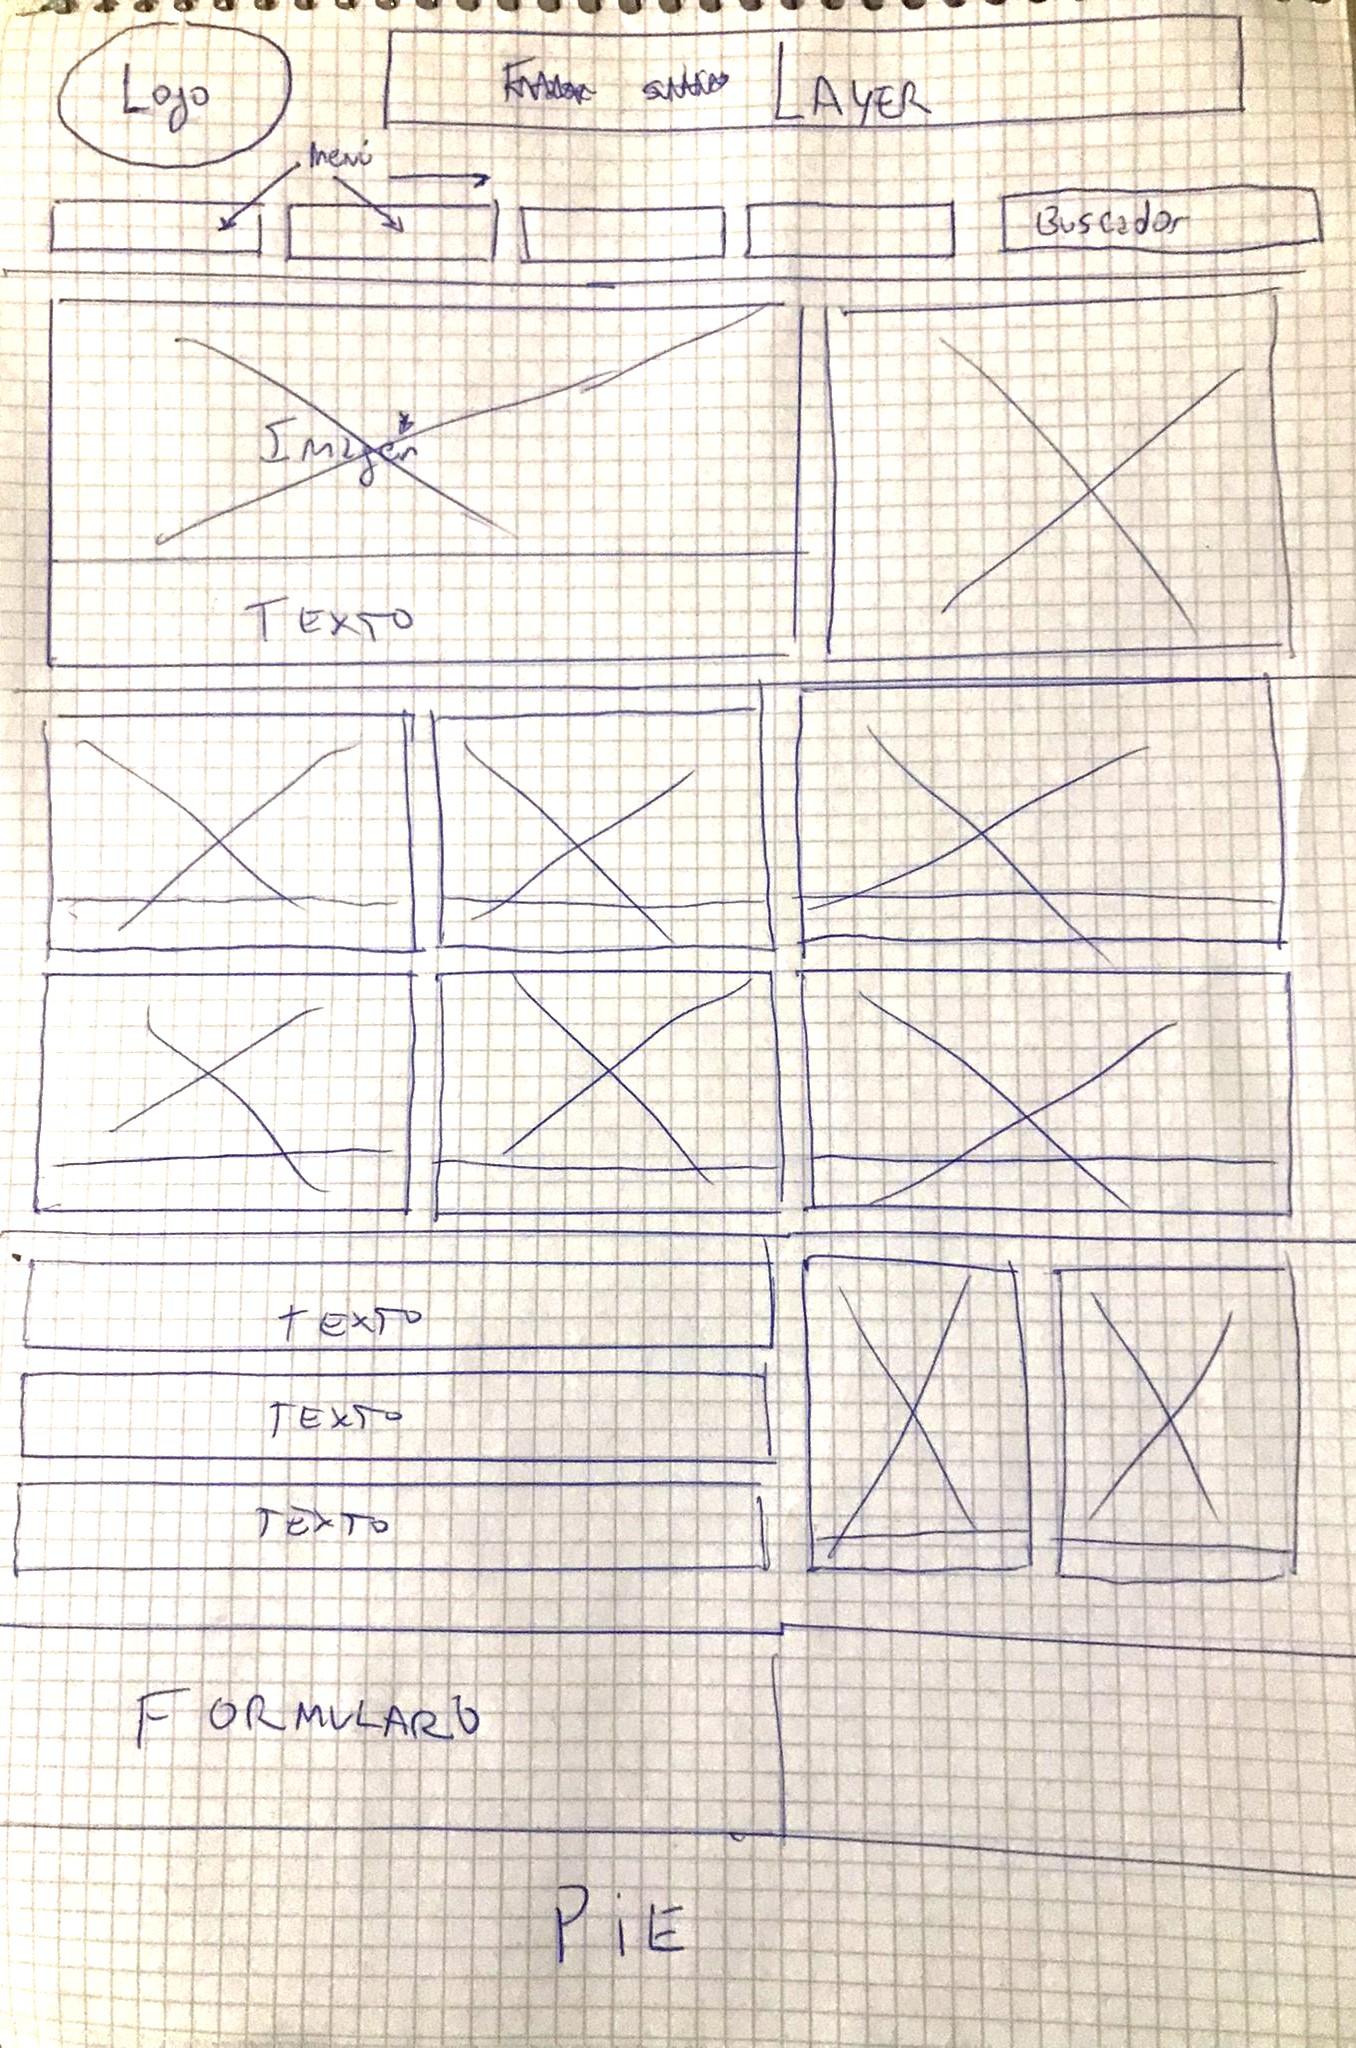 Logo
LAYER
menú
Buscador
Imagen
TEXTO
TEXTO
TEXTO
TEXTO
FORMULARO
PiE